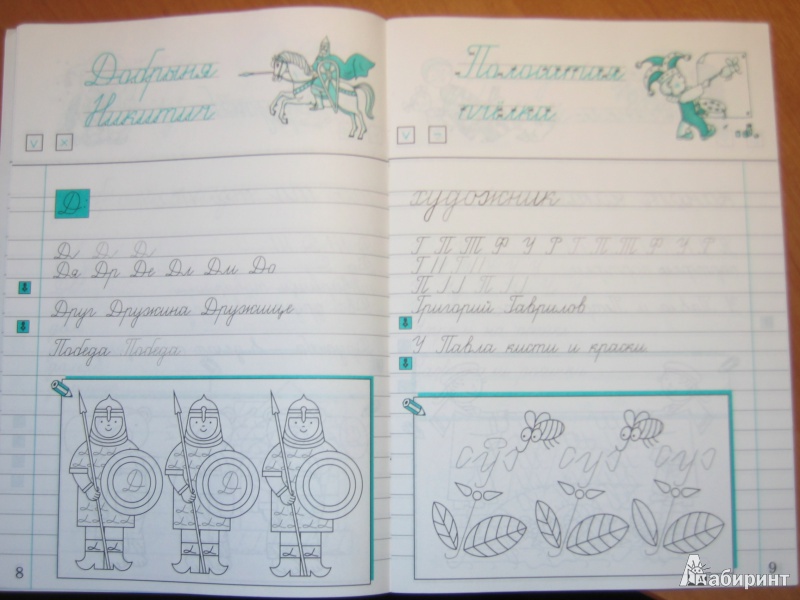 Добрыня
Никитич
v x
Д
Д Д Д
Дя Др Де Дл Дм До
Друг Дружина Дружище
Победа Победа
Д Д
8
Полосатая
пчёлка
v
художник
Г П Т Ф У Р Г П Т Ф У Р
Григорий Гаврилов
У Павла кисти и краски
9
Лабиринт